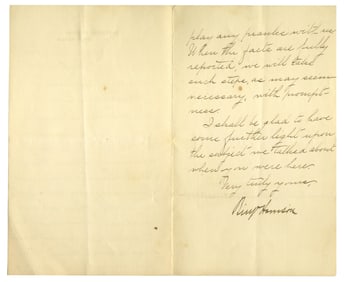 play any pranks with us
When the facts are fully
reported, we will take
such steps, as may seem
necessary, with prompt-
ness.
I shall be glad to have
some further light upon
the subject we talked about
when you were here.
Very truly yours,
Benj Harrison